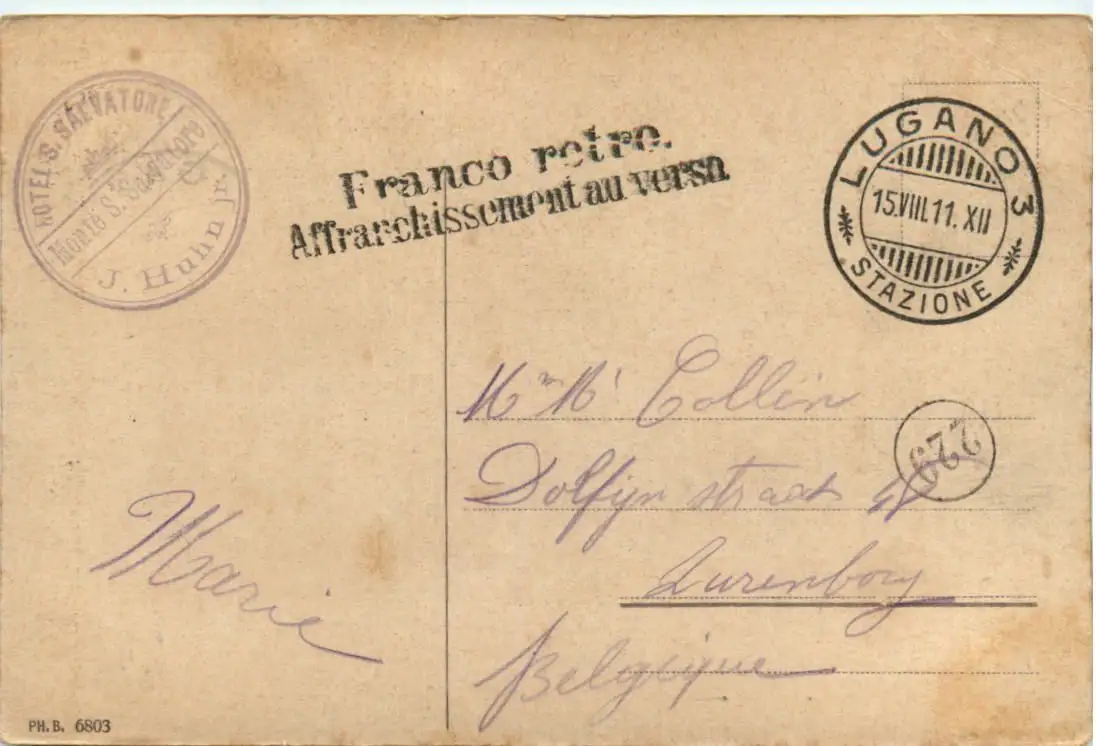 HOTEL S. SALVATORE
Monte S. Salvatore
J. Huhn jr.
Franco retro.
Affranchissement au verso
LUGANO 3
15.VIII.11. XII
STAZIONE
Collin
229
Dolfijn straat
Zurenborg
Belgique
Marie
PH.B. 6803